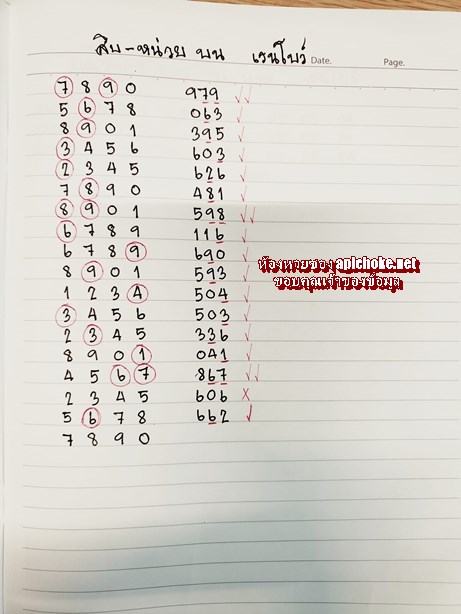 สิบ-หน่วย บน เรนโบว์ Date. Page.
7 8 9 0 979 ✓✓
5 6 7 8 063 ✓
8 9 0 1 395 ✓
3 4 5 6 603 ✓
2 3 4 5 626 ✓
7 8 9 0 481 ✓
8 9 0 1 598 ✓✓
6 7 8 9 116 ✓
6 7 8 9 690 ✓
8 9 0 1 593 ✓
1 2 3 4 504 ✓
3 4 5 6 503 ✓
2 3 4 5 336 ✓
8 9 0 1 041 ✓
4 5 6 7 867 ✓✓
2 3 4 5 606 ✗
5 6 7 8 662 ✓
7 8 9 0
ห้องหวยซอง apichoke.net
ขอบคุณเจ้าของข้อมูล